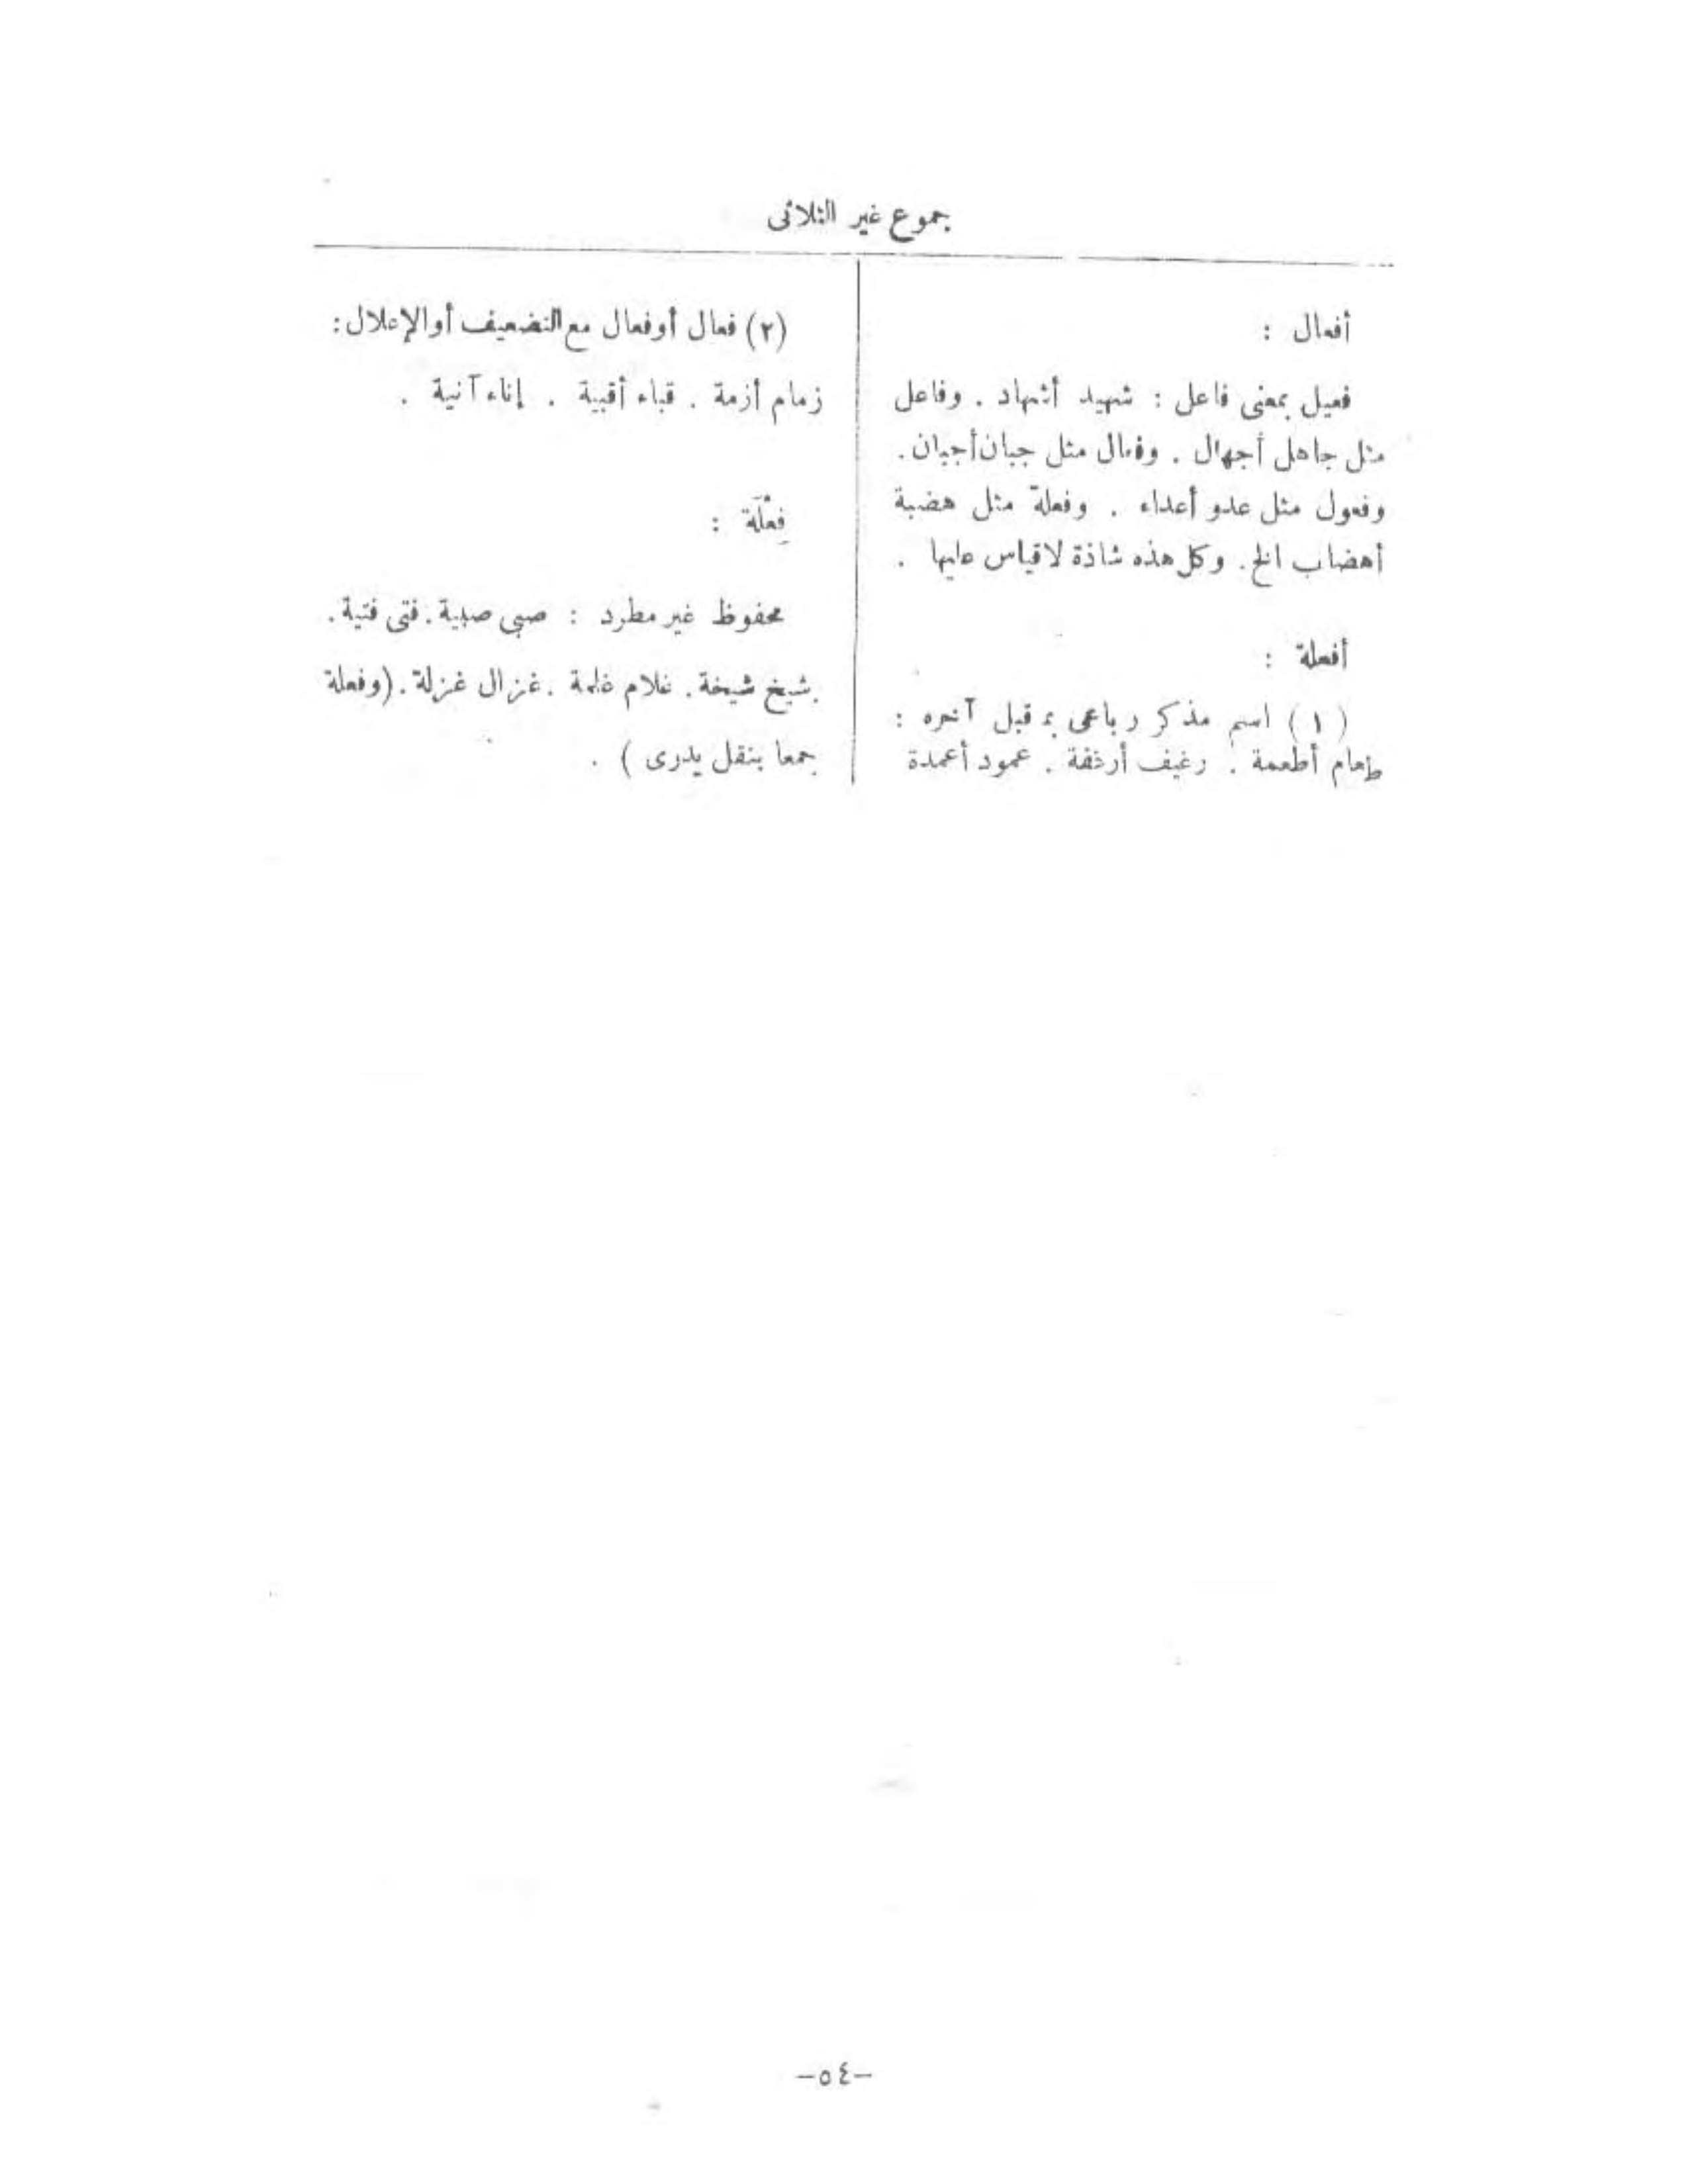 جموع غير الثلاثى
أفعال :
فعيل بمعنى فاعل : شهيد أشهاد . وفاعل
مثل جاهل أجهال . وفعال مثل جبان أجبان .
وفعول مثل عدو أعداء . وفعلة مثل هضبة
أهضاب الخ . وكل هذه شاذة لا قياس عليها .
أفعلة :
( ١ ) اسم مذكر رباعى بمد قبل آخره :
طعام أطعمة . رغيف أرغفة . عمود أعمدة
(٢) فعال أو فعال مع التضعيف أو الإعلال :
زمام أزمة . قباء أقبية . إناء آنية .
فِعْلَة :
محفوظ غير مطرد : صبى صبية . فتى فتية .
شيخ شيخة . غلام غلمة . غزال غزلة . (وفعلة
جمعا بنقل يدرى ) .
–٥٤–